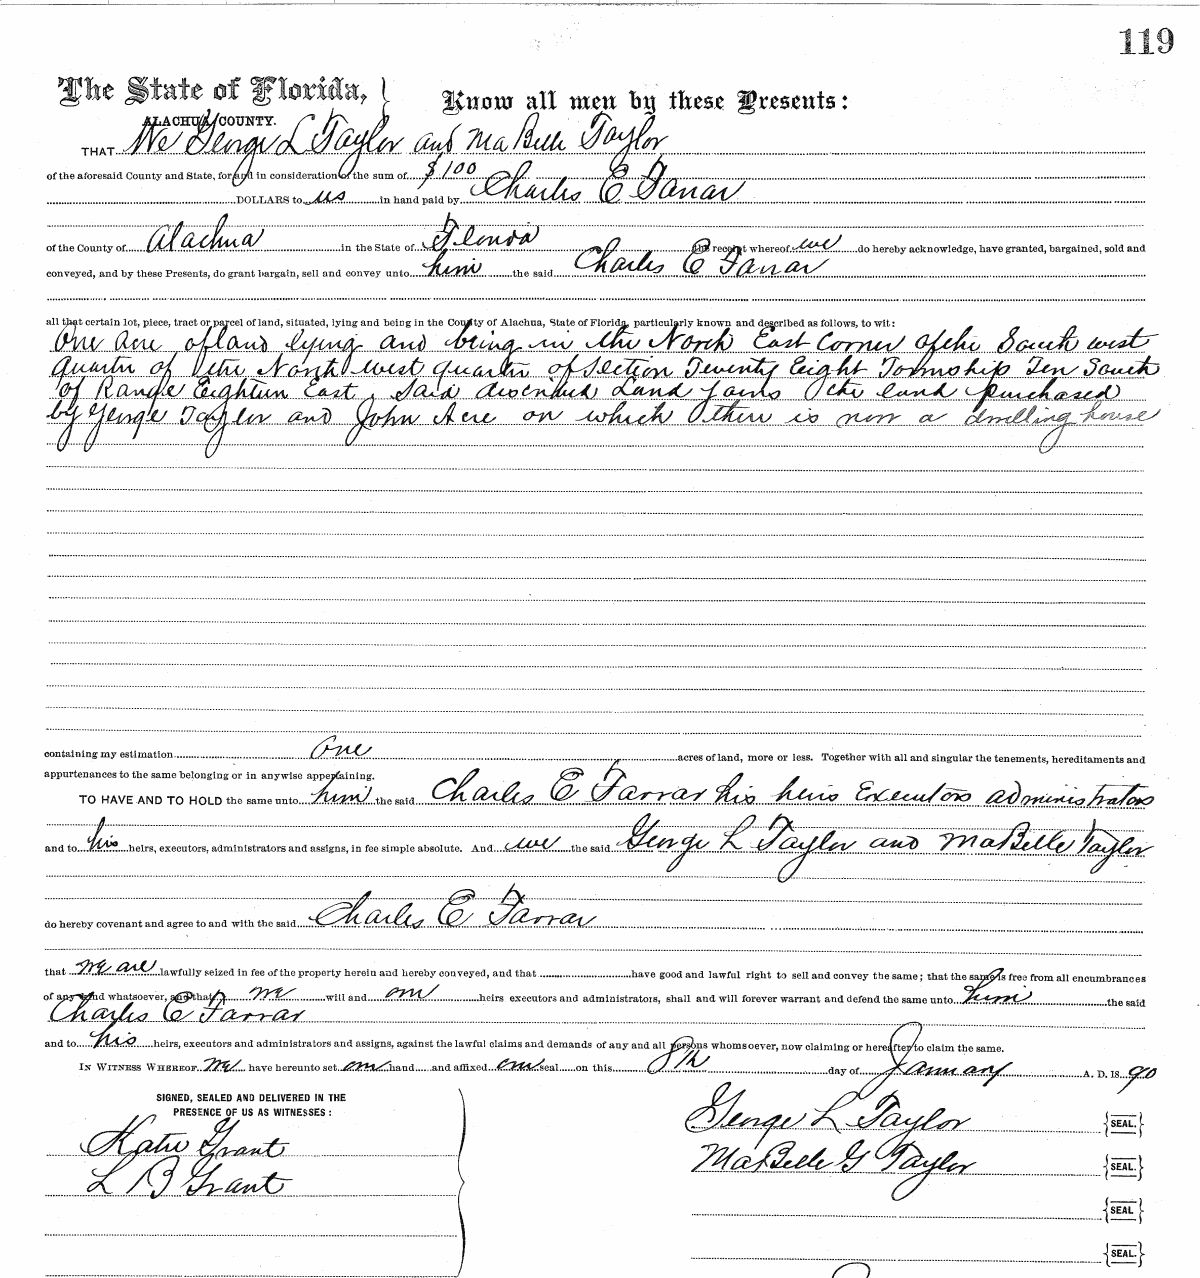 119
The State of Florida, } Know all men by these Presents:
ALACHUA COUNTY.
THAT We George L Taylor and MaBelle Taylor
of the aforesaid County and State, for and in consideration of the sum of $100
DOLLARS to us in hand paid by Charles E Farrar
of the County of Alachua in the State of Florida the receipt whereof we do hereby acknowledge, have granted, bargained, sold and
conveyed, and by these Presents, do grant bargain, sell and convey unto him the said Charles E Farrar
all that certain lot, piece, tract or parcel of land, situated, lying and being in the County of Alachua, State of Florida, particularly known and described as follows, to wit:
One acre of land lying and being in the North East Corner of the South west
quarter of the North west quarter of section Twenty Eight Township Ten South
of Range Eighteen East, Said described Land joins the land purchased
by George Taylor and John Acre on which there is now a dwelling house
containing my estimation One acres of land, more or less. Together with all and singular the tenements, hereditaments and
appurtenances to the same belonging or in anywise appertaining.
TO HAVE AND TO HOLD the same unto him the said Charles E Farrar his heirs Executors administrators
and to his heirs, executors, administrators and assigns, in fee simple absolute. And we the said George L Taylor and MaBelle Taylor
do hereby covenant and agree to and with the said Charles E Farrar
that we are lawfully seized in fee of the property herein and hereby conveyed, and that have good and lawful right to sell and convey the same; that the same is free from all encumbrances
of any kind whatsoever, and that we will and our heirs executors and administrators, shall and will forever warrant and defend the same unto him the said
Charles E Farrar
and to his heirs, executors and administrators and assigns, against the lawful claims and demands of any and all persons whomsoever, now claiming or hereafter to claim the same.
IN WITNESS WHEREOF We have hereunto set our hand and affixed our seal on this 8th day of January A. D. 18 90
SIGNED, SEALED AND DELIVERED IN THE
PRESENCE OF US AS WITNESSES:
Katie Grant
L B Grant
George L Taylor {SEAL.}
MaBelle G Taylor {SEAL.}
{SEAL}
{SEAL.}